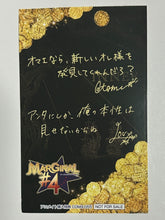 オマエなら、新しいオレ様を
発見してくれんだろ?
Atom
アンタにしか、俺の本性は
見せないからね
MARGINAL
#4
NOT FOR SALE